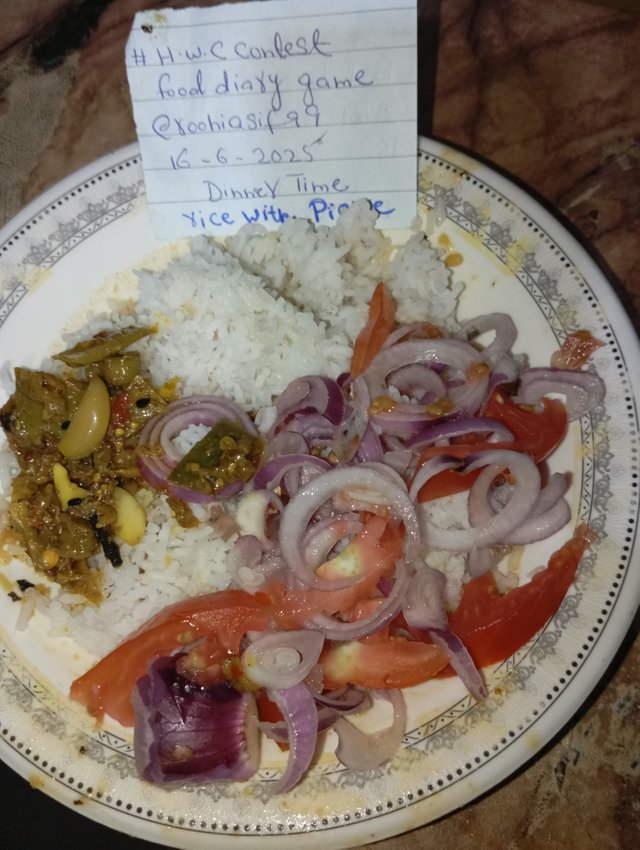 # H.W.C Contest
food diary game
@roohiasif99
16-6-2025
Dinner Time
rice with Pickle